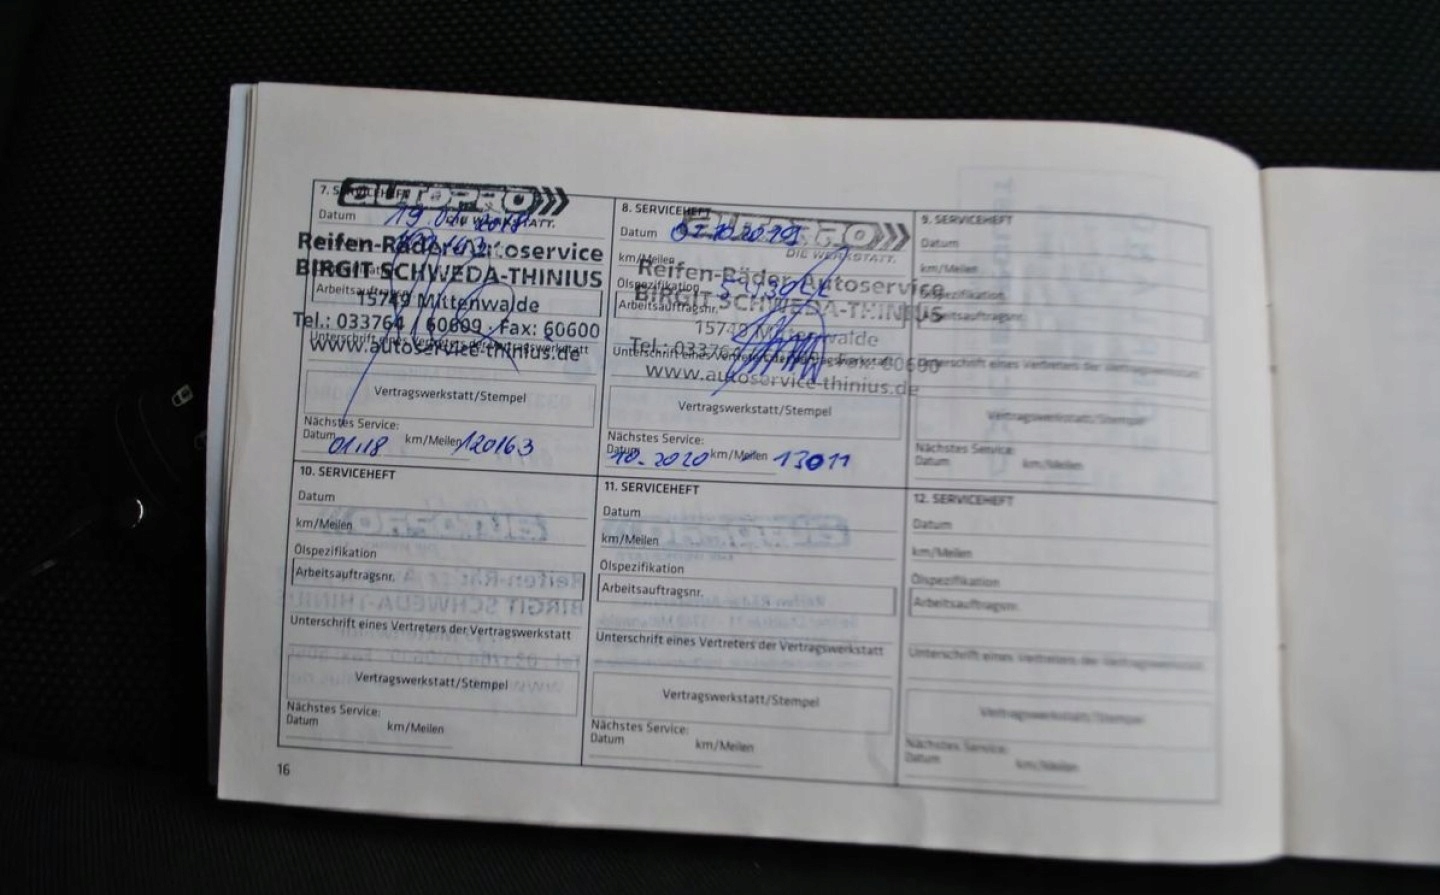 7. SERVICEHEFT
AUTOPRO
DIE WERKSTATT.
Datum
Reifen-Räder-Autoservice
BIRGIT SCHWEDA-THINIUS
Arbeitsauftragsnr.
15749 Mittenwalde
Tel.: 033764 / 60609 · Fax: 60600
Unterschrift eines Vertreters der Vertragswerkstatt
www.autoservice-thinius.de
Vertragswerkstatt/Stempel
Nächstes Service:
Datum 01.18 km/Meilen 120163
8. SERVICEHEFT
AUTOPRO
Datum
DIE WERKSTATT.
km/Meilen
Reifen-Räder-Autoservice
Ölspezifikation
BIRGIT SCHWEDA-THINIUS
Arbeitsauftragsnr.
15749 Mittenwalde
Unterschrift eines Vertreters der Vertragswerkstatt
Tel.: 033764 Fax: 60600
www.autoservice-thinius.de
Vertragswerkstatt/Stempel
Nächstes Service:
Datum 10.2020 km/Meilen 13011
9. SERVICEHEFT
Datum
km/Meilen
Ölspezifikation
Arbeitsauftragsnr.
Unterschrift eines Vertreters der Vertragswerkstatt
Vertragswerkstatt/Stempel
Nächstes Service:
Datum km/Meilen
10. SERVICEHEFT
Datum
km/Meilen
Ölspezifikation
Arbeitsauftragsnr.
Unterschrift eines Vertreters der Vertragswerkstatt
Vertragswerkstatt/Stempel
Nächstes Service:
Datum km/Meilen
11. SERVICEHEFT
Datum
km/Meilen
Ölspezifikation
Arbeitsauftragsnr.
Unterschrift eines Vertreters der Vertragswerkstatt
Vertragswerkstatt/Stempel
Nächstes Service:
Datum km/Meilen
12. SERVICEHEFT
Datum
km/Meilen
Ölspezifikation
Arbeitsauftragsnr.
Unterschrift eines Vertreters der Vertragswerkstatt
Vertragswerkstatt/Stempel
Nächstes Service:
Datum km/Meilen
16